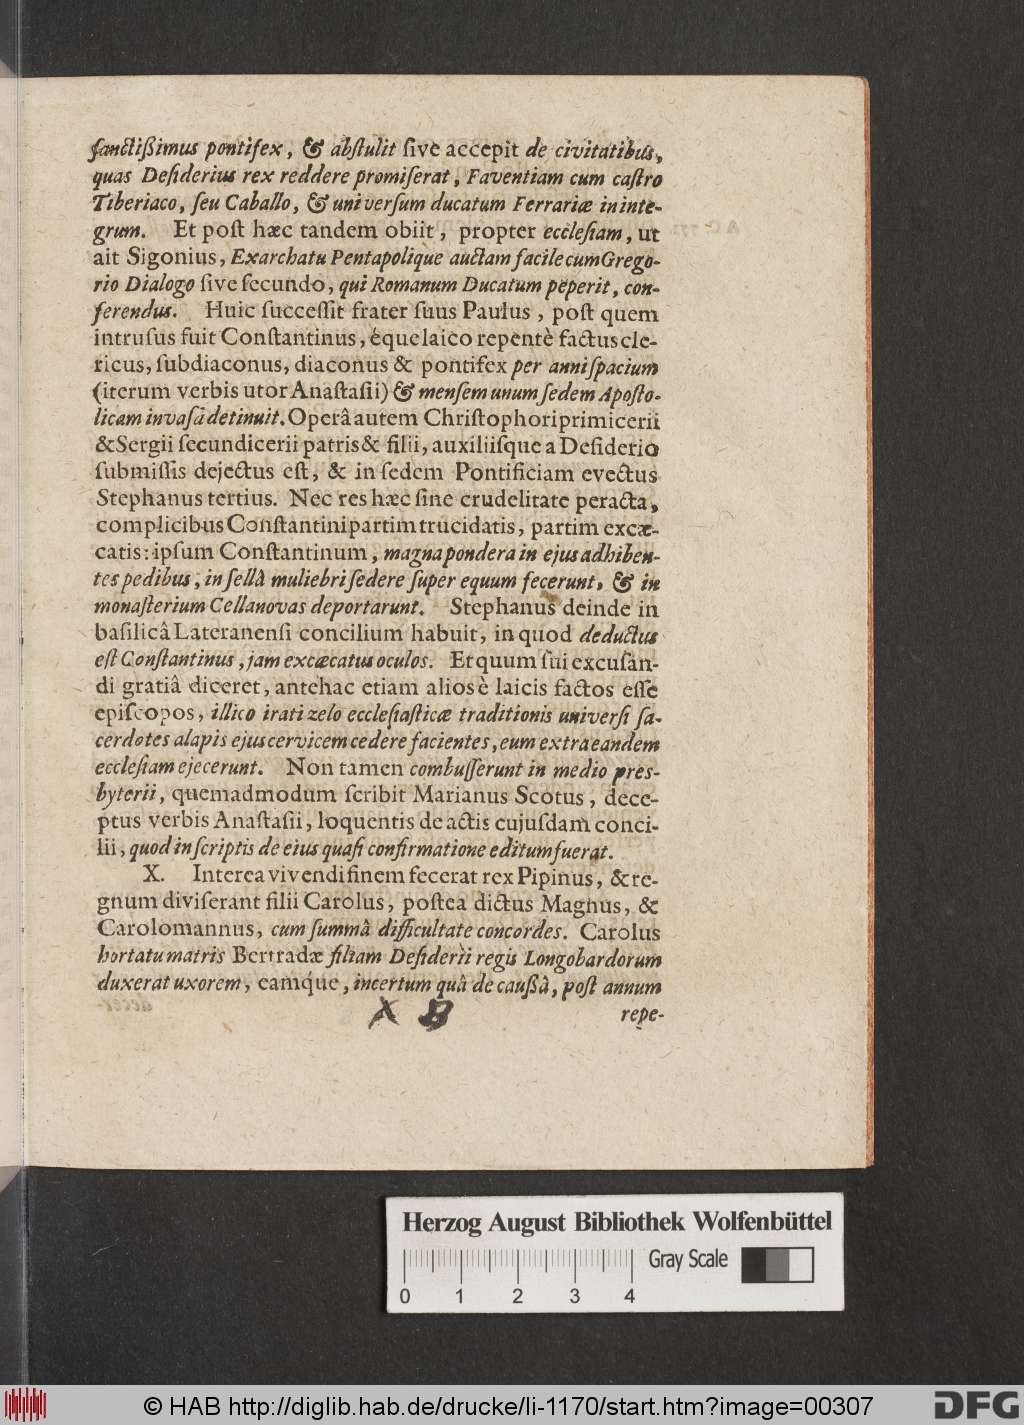 ſanctiſſimus pontifex, & abſtulit ſive accepit de civitatibus,
quas Deſiderius rex reddere promiſerat, Faventiam cum caſtro
Tiberiaco, ſeu Caballo, & univerſum ducatum Ferrariæ in inte-
grum. Et poſt hæc tandem obiit, propter eccleſiam, ut
ait Sigonius, Exarchatu Pentapolique auctam facile cum Grego-
rio Dialogo ſive ſecundo, qui Romanum Ducatum peperit, con-
ferendus. Huic ſucceſſit frater ſuus Paulus, poſt quem
intruſus fuit Conſtantinus, éque laico repentè factus cle-
ricus, ſubdiaconus, diaconus & pontifex per anni ſpacium
(iterum verbis utor Anaſtaſii) & menſem unum ſedem Apoſto-
licam invaſâ detinuit. Operâ autem Chriſtophori primicerii
& Sergii ſecundicerii patris & filii, auxiliiſque a Deſiderio
ſubmiſſis dejectus eſt, & in ſedem Pontificiam evectus
Stephanus tertius. Nec res hæc ſine crudelitate peracta,
complicibus Conſtantini partim trucidatis, partim excæ-
catis: ipſum Conſtantinum, magna pondera in ejus adhiben-
tes pedibus, in ſellâ muliebri ſedere ſuper equum fecerunt, & in
monaſterium Cellanovas deportarunt. Stephanus deinde in
baſilicâ Lateranenſi concilium habuit, in quod deductus
eſt Conſtantinus, jam excæcatus oculos. Et quum ſui excuſan-
di gratiâ diceret, antehac etiam alios è laicis factos eſſe
epiſcopos, illico irati zelo eccleſiaſticæ traditionis univerſi ſa-
cerdotes alapis ejus cervicem cedere facientes, eum extra eandem
eccleſiam ejecerunt. Non tamen combuſſerunt in medio pres-
byterii, quemadmodum ſcribit Marianus Scotus, dece-
ptus verbis Anaſtaſii, loquentis de actis cujuſdam conci-
lii, quod in ſcriptis de eius quaſi confirmatione editum fuerat.
X. Interea vivendi finem fecerat rex Pipinus, & re-
gnum diviſerant filii Carolus, poſtea dictus Magnus, &
Carolomannus, cum ſummâ difficultate concordes. Carolus
hortatu matris Bertradæ filiam Deſiderii regis Longobardorum
duxerat uxorem, eamque, incertum quâ de cauſſà, poſt annum
X B
repe-
Herzog August Bibliothek Wolfenbüttel
Gray Scale
0 1 2 3 4
© HAB http://diglib.hab.de/drucke/li-1170/start.htm?image=00307
DFG